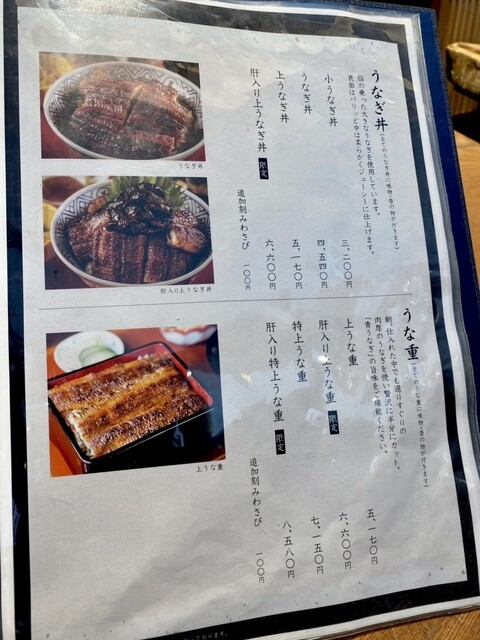 うなぎ丼（全てのうなぎ丼に吸物・香の物が付きます）
脂の乗った大きなうなぎを使用しています。
表面はパリッと中は柔らかくジューシーに仕上げます。
小うなぎ丼 三、二〇〇円
うなぎ丼 四、五四〇円
上うなぎ丼 五、一七〇円
肝入り上うなぎ丼 限定 六、六〇〇円
追加刻みわさび 一〇〇円
うなぎ丼
肝入り上うなぎ丼
うな重（全てのうな重に吸物・香の物が付きます）
朝、仕入れた中でも選りすぐりの
肉厚のうなぎを使い贅沢に半分にカット。
「青うなぎ」の旨味をご堪能ください。
上うな重 五、一七〇円
肝入り上うな重 限定 六、六〇〇円
特上うな重 七、一五〇円
肝入り特上うな重 限定 八、五八〇円
追加刻みわさび 一〇〇円
上うな重
ております。